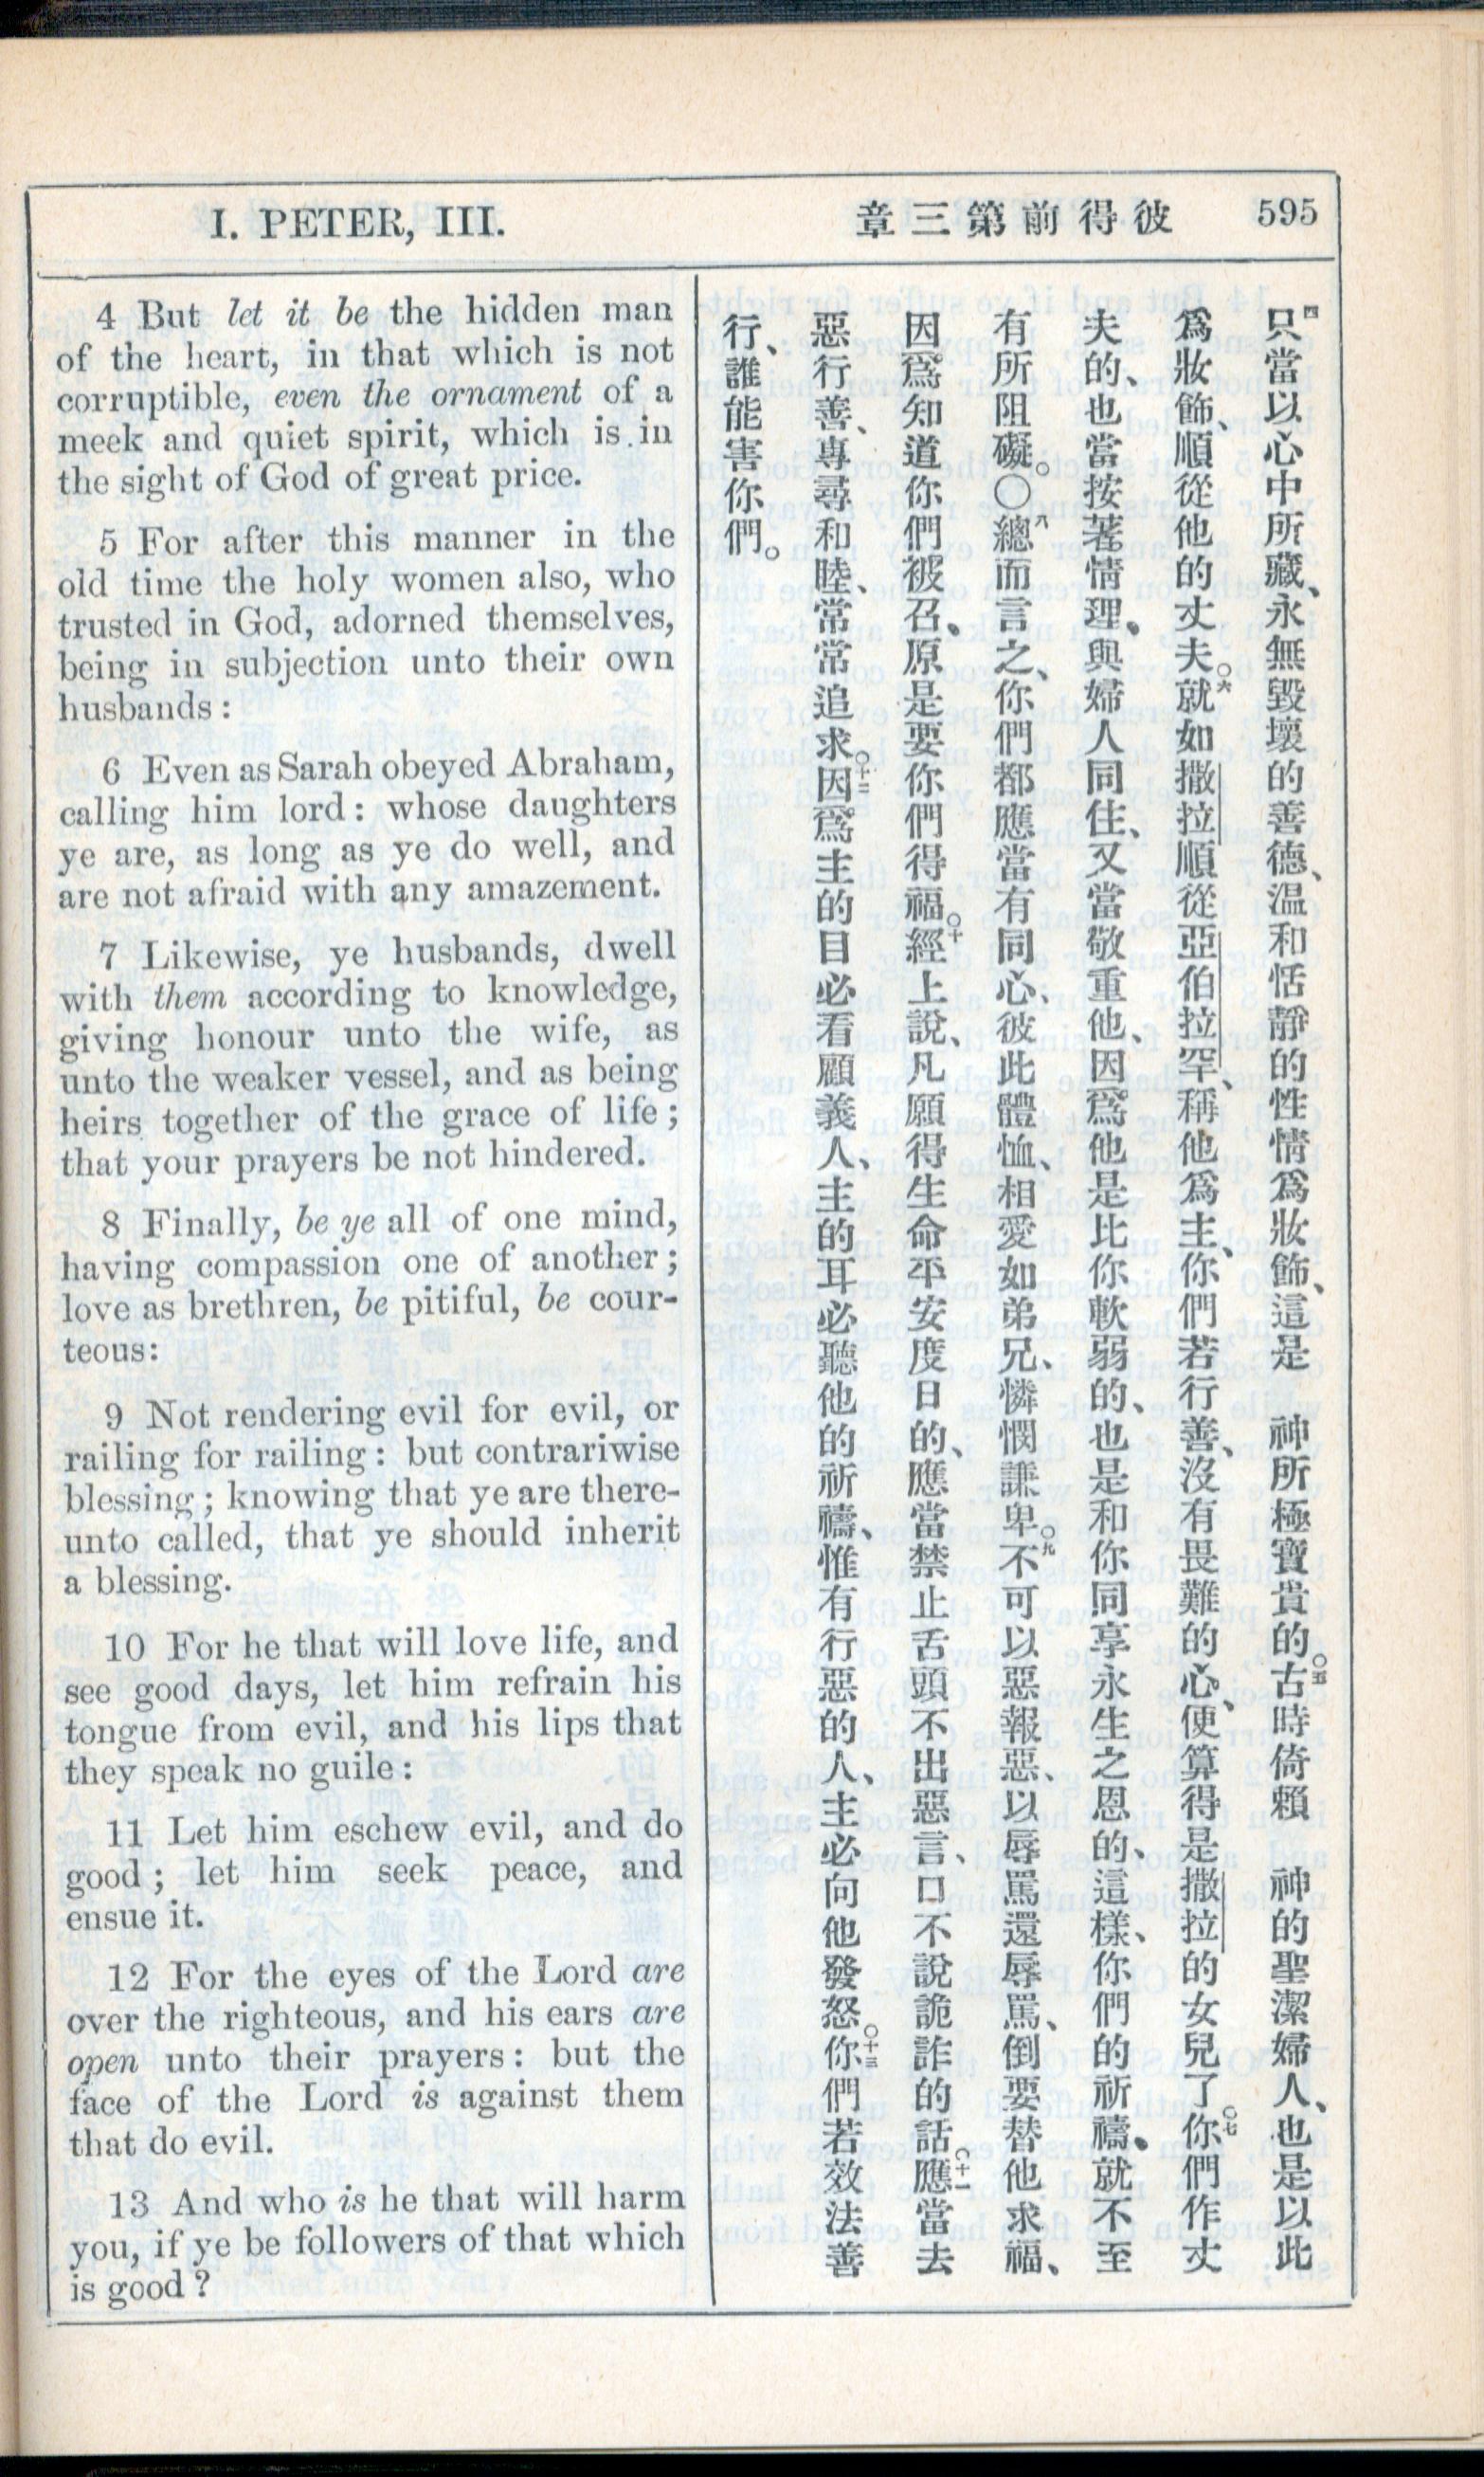 I. PETER, III.
章三第前得彼
595
4 But let it be the hidden man
of the heart, in that which is not
corruptible, even the ornament of a
meek and quiet spirit, which is in
the sight of God of great price.
5 For after this manner in the
old time the holy women also, who
trusted in God, adorned themselves,
being in subjection unto their own
husbands:
6 Even as Sarah obeyed Abraham,
calling him lord: whose daughters
ye are, as long as ye do well, and
are not afraid with any amazement.
7 Likewise, ye husbands, dwell
with them according to knowledge,
giving honour unto the wife, as
unto the weaker vessel, and as being
heirs together of the grace of life;
that your prayers be not hindered.
8 Finally, be ye all of one mind,
having compassion one of another;
love as brethren, be pitiful, be cour-
teous:
9 Not rendering evil for evil, or
railing for railing: but contrariwise
blessing; knowing that ye are there-
unto called, that ye should inherit
a blessing.
10 For he that will love life, and
see good days, let him refrain his
tongue from evil, and his lips that
they speak no guile:
11 Let him eschew evil, and do
good; let him seek peace, and
ensue it.
12 For the eyes of the Lord are
over the righteous, and his ears are
open unto their prayers: but the
face of the Lord is against them
that do evil.
13 And who is he that will harm
you, if ye be followers of that which
is good?
四只當以心中所藏、永無毀壞的善德、温和恬靜的性情爲妝飾、這是　神所極寶貴的。五古時倚賴　神的聖潔婦人、也是以此
爲妝飾、順從他的丈夫。六就如撒拉順從亞伯拉罕、稱他爲主、你們若行善、沒有畏難的心、便算得是撒拉的女兒了。七你們作丈
夫的、也當按著情理、與婦人同住、又當敬重他、因爲他是比你軟弱的、也是和你同享永生之恩的、這樣、你們的祈禱、就不至
有所阻礙。〇八總而言之、你們都應當有同心、彼此體恤、相愛如弟兄、憐憫謙卑。九不可以惡報惡、以辱罵還辱罵、倒要替他求福、
因爲知道你們被召、原是要你們得福。十經上說、凡願得生命平安度日的、應當禁止舌頭不出惡言、口不說詭詐的話。十一應當去
惡行善、專尋和睦、常常追求。十二因爲主的目必看顧義人、主的耳必聽他的祈禱、惟有行惡的人、主必向他發怒。十三你們若效法善
行、誰能害你們。